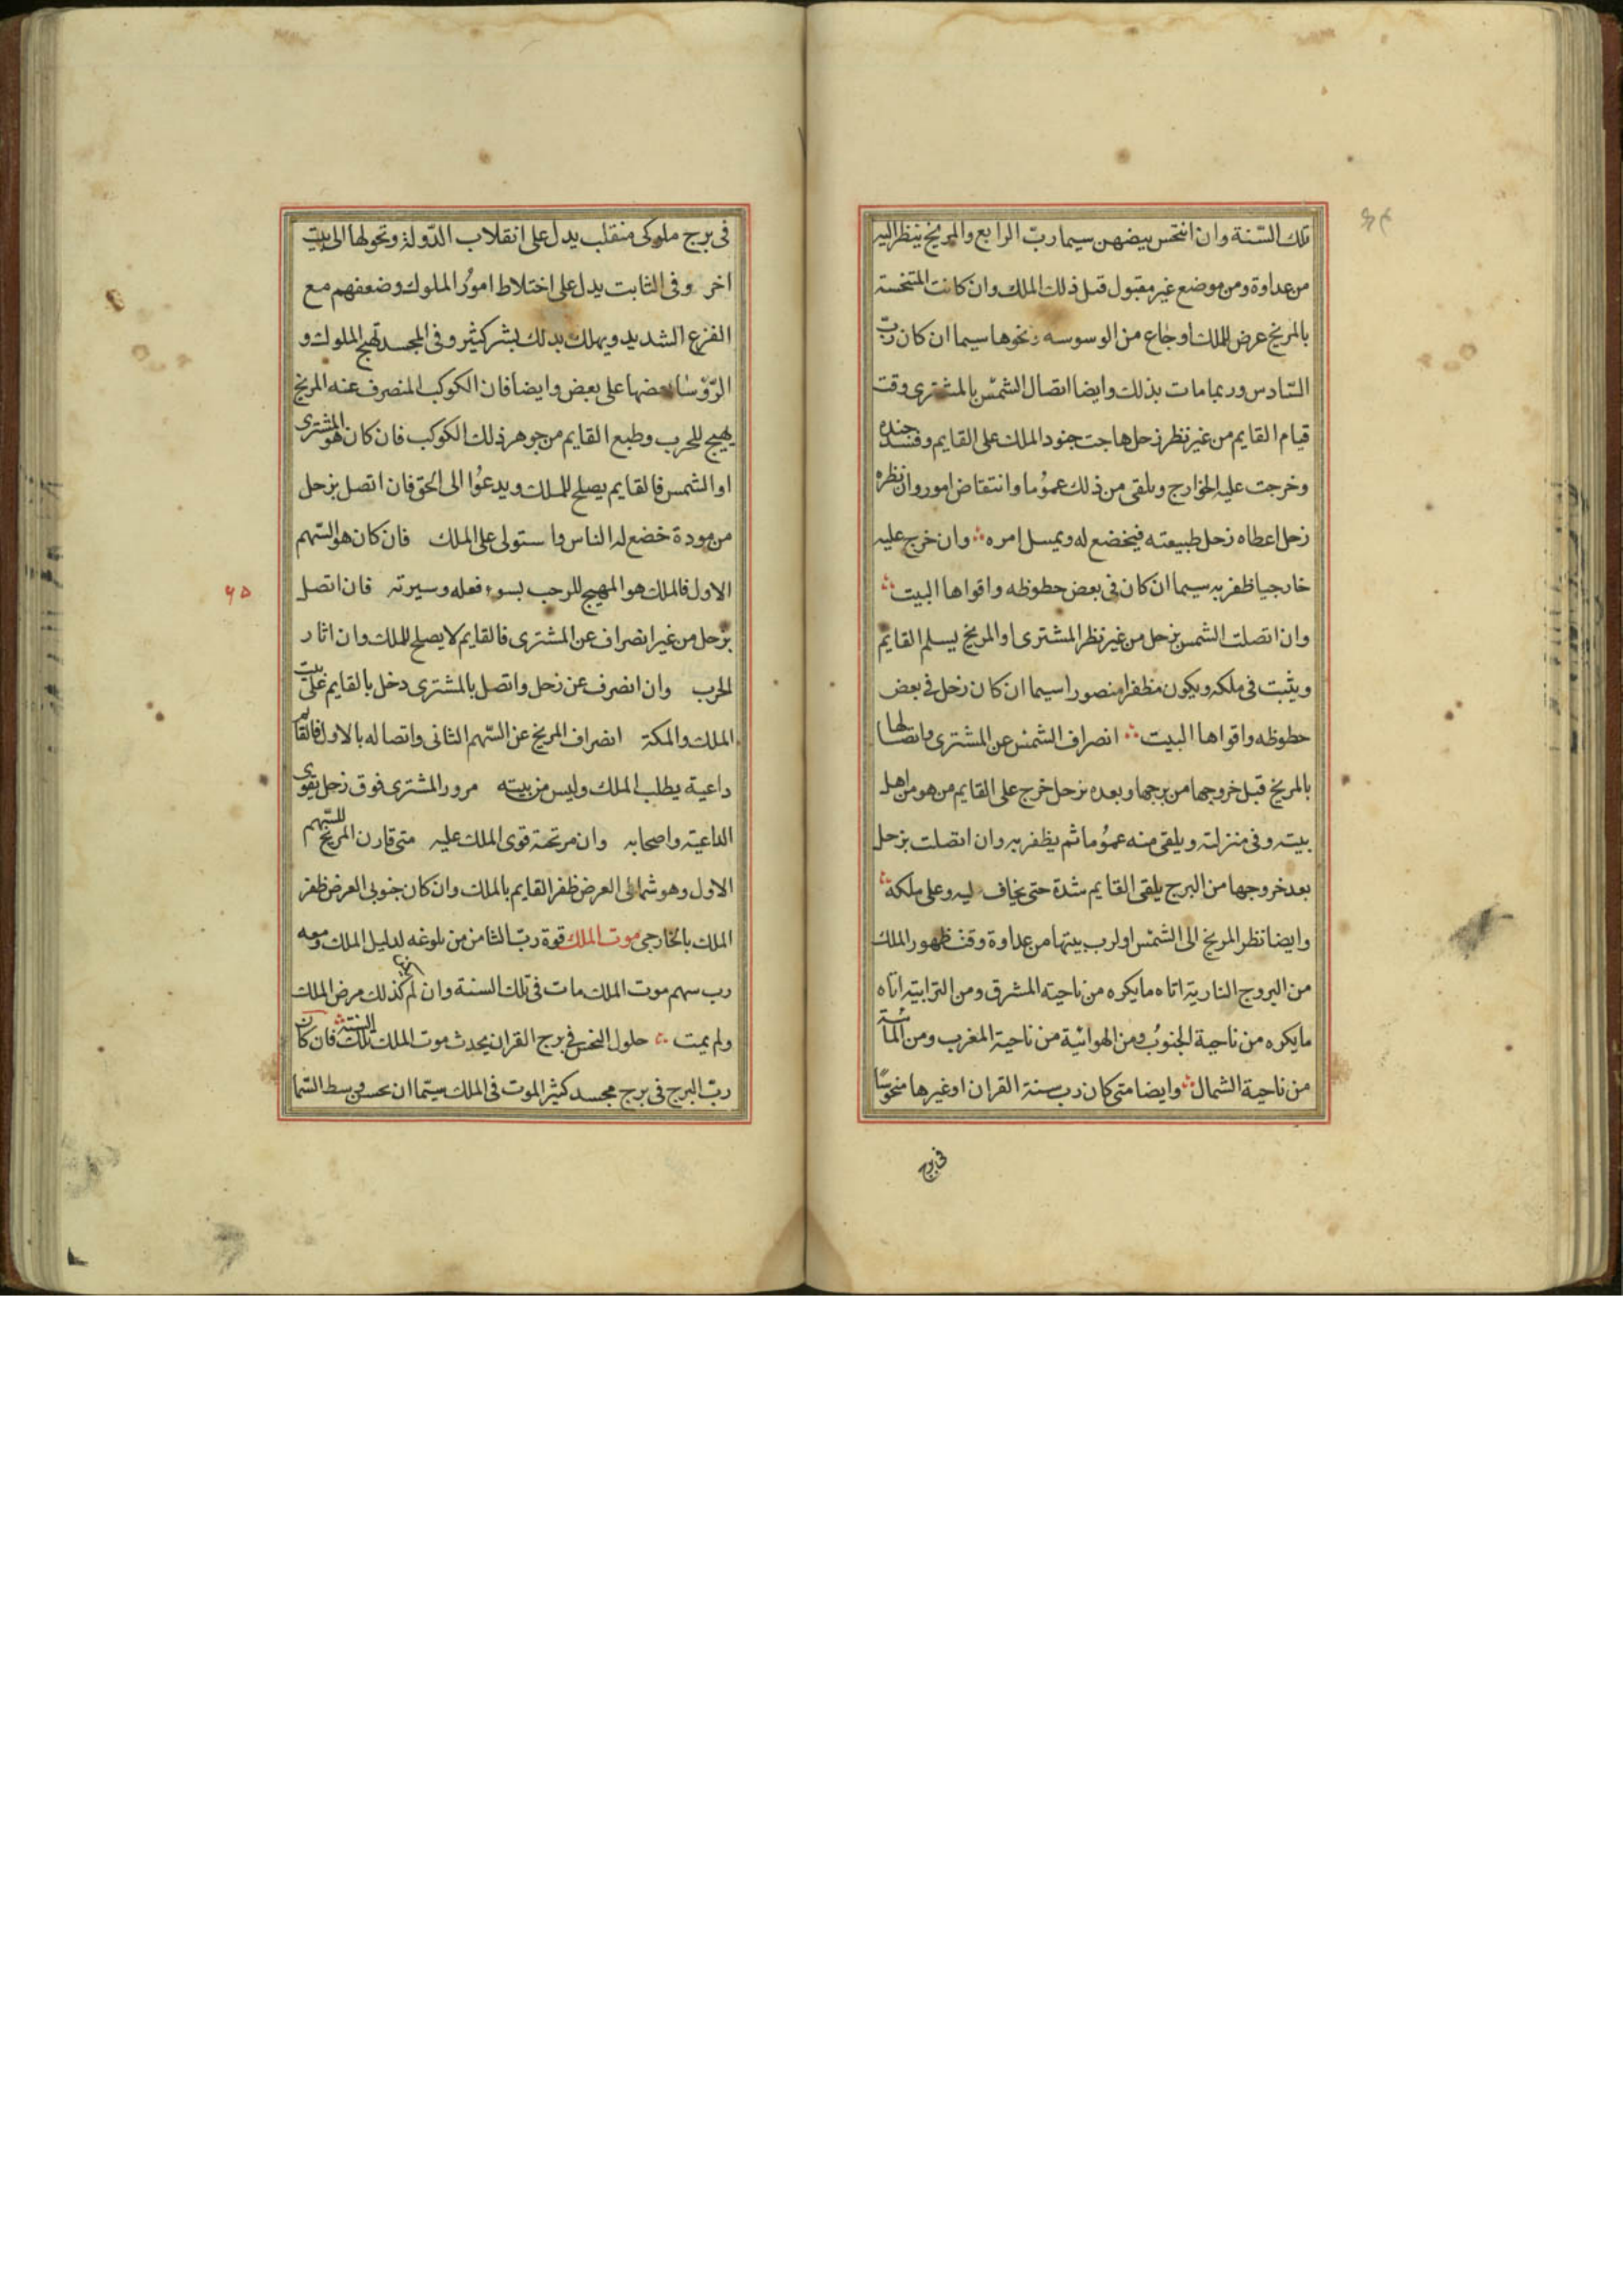 تلك السّنة وان انتحس بيضهن سيما ربّ الرابع والمريخ ينظر اليه
من عداوة ومن موضع غير مقبول قتل ذلك الملك وان كانت المنتحسة
بالمريخ عرض للملك اوجاع من الوسوسه ونحوها سيما ان كان ربّ
السّادس وربما مات بذلك وايضا اتصال الشمس بالمشترى وقت
قيام القايم من غير نظر زحل هاجت جنود الملك على القايم وفسد جنده
وخرجت عليه الخوارج ويلقى من ذلك عموُما وانتقاض امور وان نظره
زحل اعطاه زحل طبيعته فيخضع له ويمسل امره ∴ وان خرج عليه
خارجيا ظفر به سيما ان كان فى بعض حطوظه واقواها البيت ∴
وان اتصلت الشمس بزحل من غير نظر المشترى او المريخ يسلم القايم
ويثبت فى ملكه ويكون مظفرا منصورا سيما ان كان زحل فى بعض
حطوظه واقواها البيت ∴ انصراف الشمس عن المشترى واتصالها
بالمريخ قبل خروجها من برجها وبعده بزحل خرج على القايم من هو من اهل
بيته وفى منزلته ويلقى منه عموُما ثم يظفر به وان اتصلت بزحل
بعد خروجها من البرج يلقى القايم شدة حتى يخاف ليه وعلى ملكه ∴
وايضا نظر المريخ الى الشمس او لرب بيتها من عداوة وقت ظهور الملك
من البروج النارية اتاه مايكره من ناحية المشرق ومن الترابية اتاه
مايكره من ناحية الجنوُب ومن الهوائية من ناحية المغرب ومن المائية
من ناحية الشمال ∴ وايضا متى كان رب سنة القران او غيرها منحوسًا
فى برج
فى برج ملوكى منقلب يدل على انقلاب الدّولة وتحولها الى بيت
اخر وفى الثابت يدل على اختلاط اموُر الملوك وضعفهم مع
الفزع الشديد ويهلك بذلك بشر كثير وفى المجسد تهيج الملوك و
الرّؤسا بعضها على بعض وايضا فان الكوكب المنصرف عنه المريخ
يهيج للحرب وطبع القايم من جوهر ذلك الكوكب فان كان هو المشترى
او الشمس فالقايم يصلح للملك ويدعوُا الى الحق فان اتصل بزحل
من مودة خضع له الناس واستولى على الملك فان كان هو السّهم
الاول فالملك هو المهيج للرحب بسوء فعله وسيرته فان اتصل
٦٥
بزحل من غير انصراف عن المشترى فالقايم لا يصلح للملك وان اثار
الحرب وان انصرف عن زحل واتصل بالمشترى دخل بالقايم على بيت
الملك والمكة انصراف المريخ عن السّهم الثانى واتصاله بالاول فالقايم
داعية يطلب الملك وليس من بيته مرور المشترى فوق زحل يقوى
الداعية واصحابه وان مر تحته قوى الملك عليه متى قارن المريخ للسّهم
الاول وهو شمالى العرض ظفر القايم بالملك وان كان جنوبى العرض ظفر
الملك بالخارجى موت الملك قوة ربّ الثامن من بلوغه لدليل الملك ومعه
رب سهم موت الملك مات فى تلك السنة وان لم يكن كذلك مرض الملك
ولم يمت ∴ حلول النحس فى برج القران يحدث موت الملك تلك السنة ∴ فان كان
ربّ البرج فى برج مجسد كثير الموت فى الملك سيّما ان نحس وسط السّما